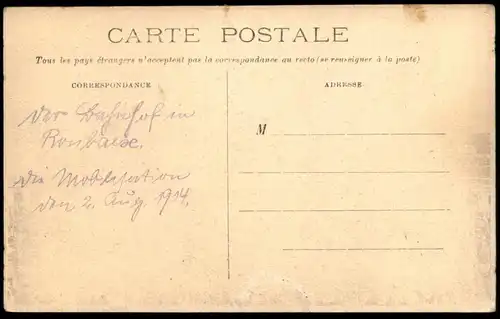 CARTE POSTALE
Tous les pays étrangers n'acceptent pas la correspondance au recto (se renseigner à la poste)
CORRESPONDANCE
ADRESSE
Der Bahnhof in
Roubaix.
Die Mobilisation
den 2. Aug. 1914.
M